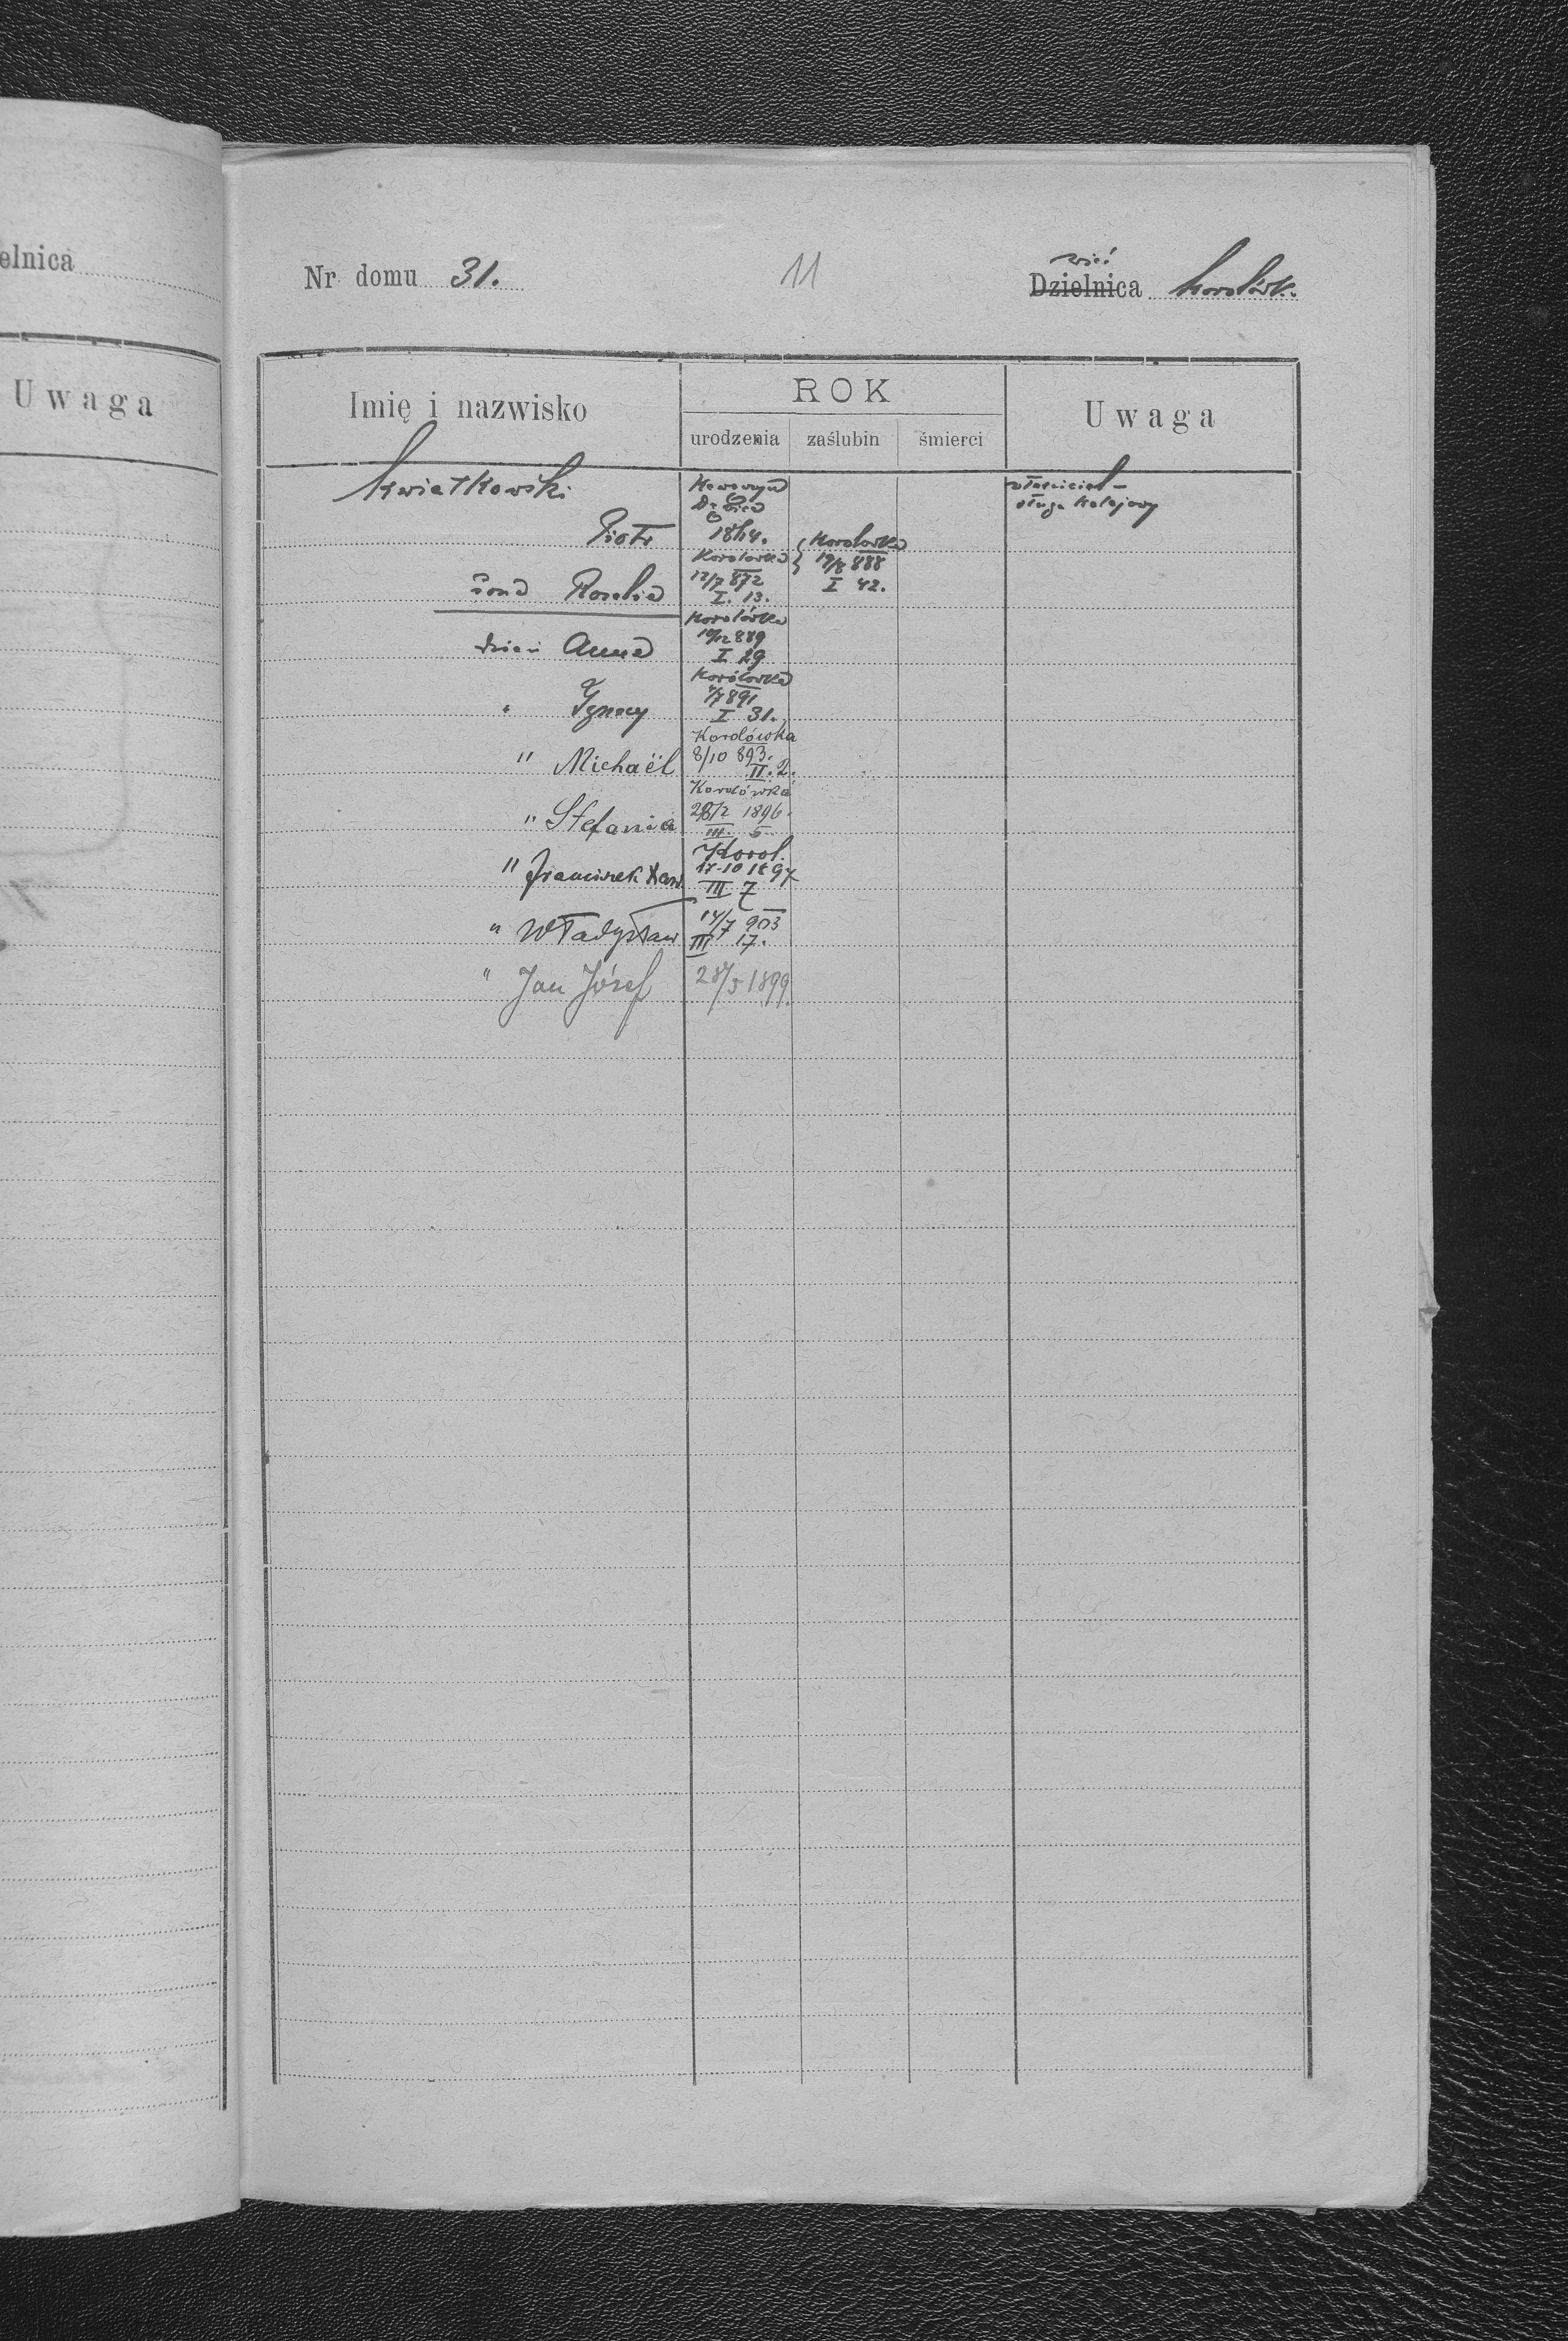 elnica
Uwaga
Nr domu 31.
11
wieś
Dzielnica Korolówk.
Imię i nazwisko
ROK
urodzenia zaślubin śmierci
Uwaga
Kwiatkowski
właściciel –
sługa kolejowy
Piotr
żona Rozalia
Korolowka
12/7 872
I. 13.
Korolowka
19/8 888
I 42.
dzieci Anna
Korolówka
10/12 889
I 29
" Ignacy
Korolowka
4/7 891
I 31.
" Michaël
Korolówka
8/10 893.
II. 2.
" Stefania
Korolówka
28/2 1896.
III. 5
" Franciszek Xaw.
Korol.
17-10 1897
III 7
" Władysław
14/7 903
III 17.
" Jan Józef
28/5 1899.